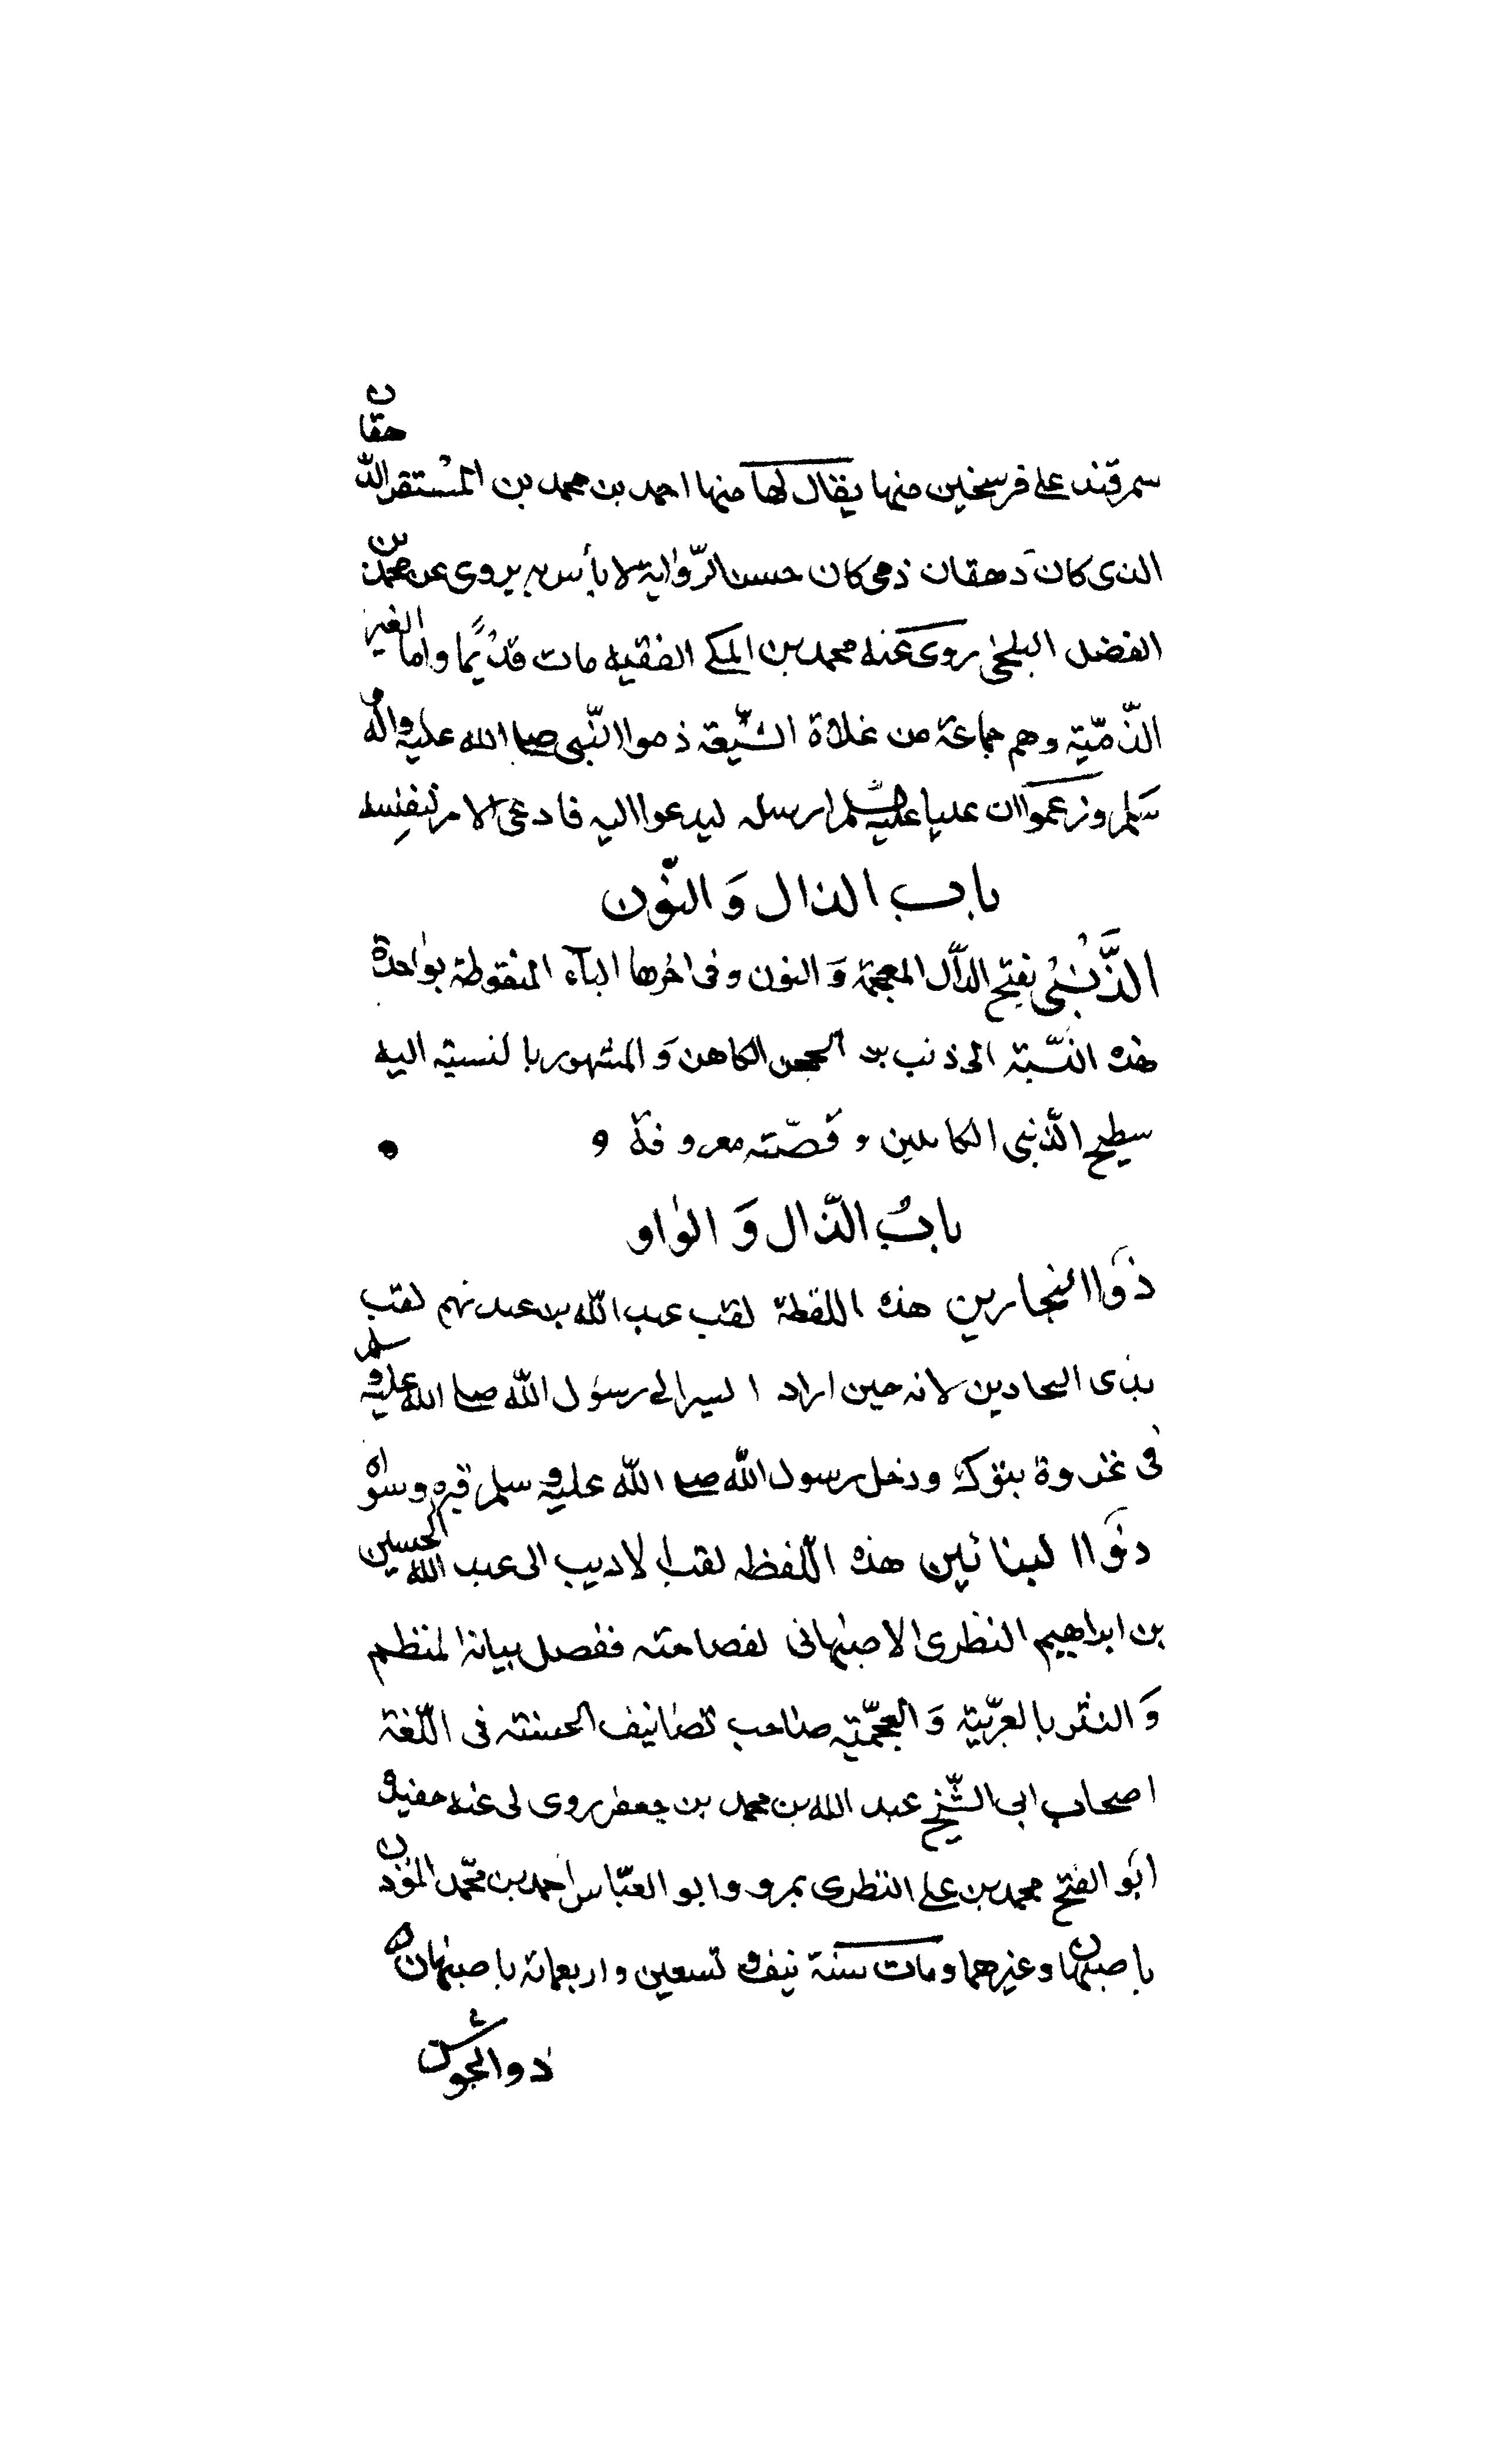 سمرقند على فرسخين منها يقال لها منها احمد بن محمد بن المستقر الدهقان
الذى كان دهقان ذمى كان حسن الرّواية لا بأس به يروى عن محمد بن
الفضل البلخى روى عنه محمد بن المكى الفقيه مات قديمًا واما الغير
الذّمّيّة وهم جماعة من غلاة الشّيعة ذموا النّبى صلى الله عليه واله و
سلم وزعموا ان عليا عليه السلم ارسله ليدعوا اليه فادعى الامر لنفسه
باب الذال وَالنّون
الذَّنْبْى بفتح الذال المعجمة وَالنون وفى اخرها الباء المنقوطة بواحدة
هذه النّسبة الى ذنب بن الحجن الكاهن وَالمشهور بالنسبة اليه
سطيح الذنبى الكاهن وقصّته معروفة و
بابُ الذّال وَ الوٰاو
ذَواالنجارين هذه اللقطة لقب عبد اللّه بن عبد نهم لقب
بذى البجادين لانه حين اراد السير الى رسول اللّه صلى الله عليه وسلم
فى غزوة بتوك ودخل رسول اللّه صلى اللّه عليه وسلم قبره وسواه
ذَواا لبنائين هذه اللّفظه لقب الاديب ابى عبد اللّه الحسين
بن ابراهيم النطرى الاصبهانى لفصاحته وفضل بيانه المنظم
وَ النثر بالعربيّة وَ العجمّية صاحب تصانيف الحسنة فى اللّغة
اصحاب ابى الشّيخ عبد الله بن محمد بن جعفر روى لى عنه حفيده
ابو الفتح محمد بن على النطرى بمرو وابو العبّاس احمد بن محّمد المؤذن
باصبهان وغيرهما ومات سنة نيف و تسعين واربعمائة باصبهان
ذو الجوشن